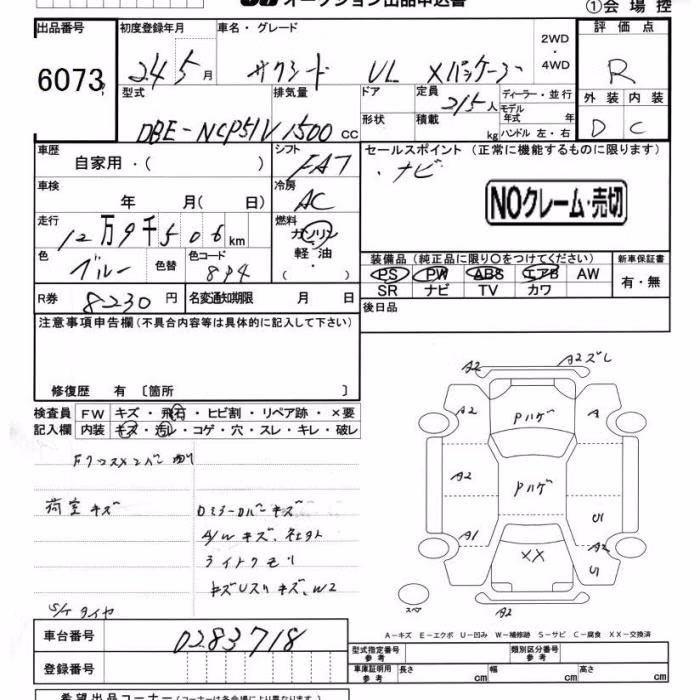 オークション出品申込書
①会場控
出品番号 初度登録年月 車名・グレード 2WD・4WD 評価点
6073 24 5月 サクシード UL Xパッケージ R
型式 排気量 ドア 定員 ディーラー・並行 外装 内装
DBE-NCP51V 1500cc 形状 2/5人 積載 kg モデル年式 年 ハンドル 左・右 D C
車歴 シフト セールスポイント (正常に機能するものに限ります)
自家用・( ) FAT ・ナビ
車検 冷房
年 月( 日) AC NOクレーム・売切
走行 燃料
12万9千506km ガソリン
色 色替 色コード 軽油 装備品(純正品に限り〇をつけてください) 新車保証書
ブルー 8P4 ( ・ ) PS PW ABS エアB AW 有・無
SR ナビ TV カワ
R券 8230円 名変通知期限 月 日 後日品
注意事項申告欄(不具合内容等は具体的に記入して下さい)
修復歴 有〔箇所 〕
検査員 FW キズ・飛石・ヒビ割・リペア跡・×要
記入欄 内装 キズ・汚レ・コゲ・穴・スレ・キレ・破レ
荷室キズ
A/Wキズ、
ライトクモリ
S/Tタイヤ
A2 A2ズレ
A2 Pハゲ A
A2 Pハゲ U1
A1 XX A2
U1
スペア A2
A-キズ E-エクボ U-凹み W-補修跡 S-サビ C-腐食 XX-交換済
車台番号 0283718 型式指定番号 参考 類別区分番号 参考
登録番号 車庫証明用 参考 長さ cm 幅 cm 高さ cm
希望出品コーナー(コーナーは各会場により異なります)